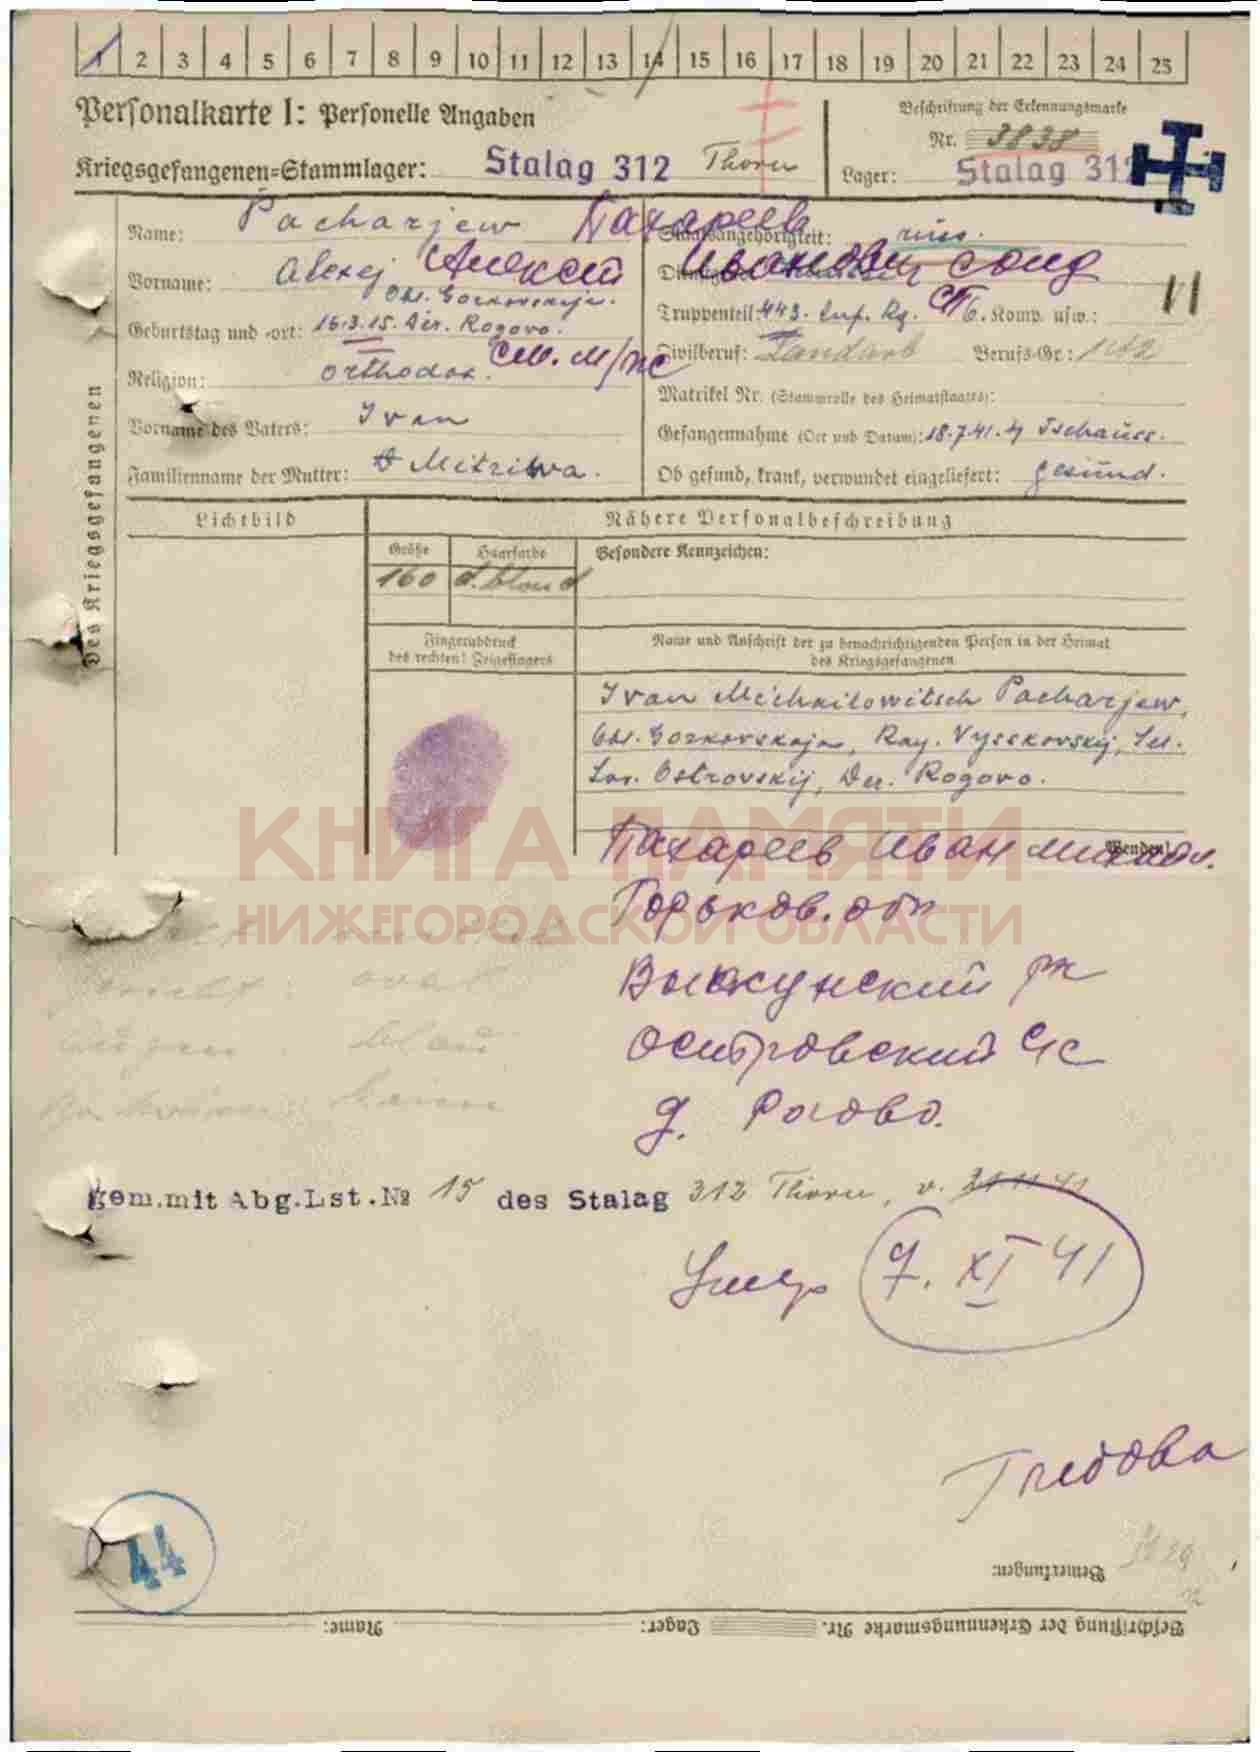 1 2 3 4 5 6 7 8 9 10 11 12 13 14 15 16 17 18 19 20 21 22 23 24 25
Personalkarte I: Personelle Angaben
Beschriftung der Erkennungsmarke
Nr. 3838
Kriegsgefangenen-Stammlager: Stalag 312 Thorn
Lager: Stalag 312
Des Kriegsgefangenen
Name: Pacharjew Пахареев
Staatsangehörigkeit: russ.
Vorname: Alexej Алексей Иванович солд
Obl. Gorkovskaja.
Geburtstag und -ort: 16.3.15. Der. Rogovo.
Truppenteil: 443. Inf. Rg. СП 6. Komp. usw.:
11
Religion: orthodox.
см. м/пс
Zivilberuf: Landarb Berufs-Gr.:
Matrikel Nr. (Stammrolle des Heimatstaates):
Vorname des Vaters: Ivan
Gefangennahme (Ort und Datum): 18.7.41. Tschauss.
Familienname der Mutter: Mitriwa.
Ob gesund, krank, verwundet eingeliefert: gesund.
Lichtbild
Nähere Personalbeschreibung
Größe Haarfarbe Besondere Kennzeichen:
160 d. blond
Fingerabdruck
des rechten! Zeigefingers
Name und Anschrift der zu benachrichtigenden Person in der Heimat
des Kriegsgefangenen
Ivan Michailowitsch Pacharjew,
Obl. Gorkovskaja, Ray. Vysskovskij, Sel.
Sov. Ostrovskij, Der. Rogovo.
Wenden!
КНИГА ПАМЯТИ
НИЖЕГОРОДСКОЙ ОБЛАСТИ
Пахареев Иван Михайл.
Горьков. обл
Выксунский рн
Островский с/с
д. Рогово.
gem.mit Abg.Lst.№ 15 des Stalag 312 Thorn, v. 21 11 41
Умер 7. XI 41
Глебова
44
Bemerkungen:
Beschriftung der Erkennungsmarke Nr. Lager: Name: